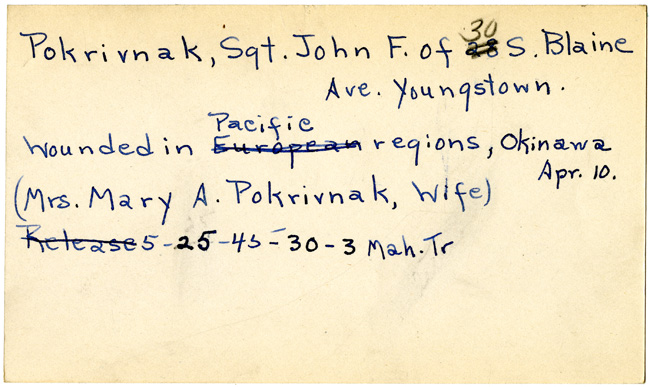 Pokrivnak, Sgt. John F. of 28 30 S. Blaine
Ave. Youngstown.
Wounded in European Pacific regions, Okinawa
Apr. 10.
(Mrs. Mary A. Pokrivnak, Wife)
Release 5-25-45-30-3 Mah. Tr